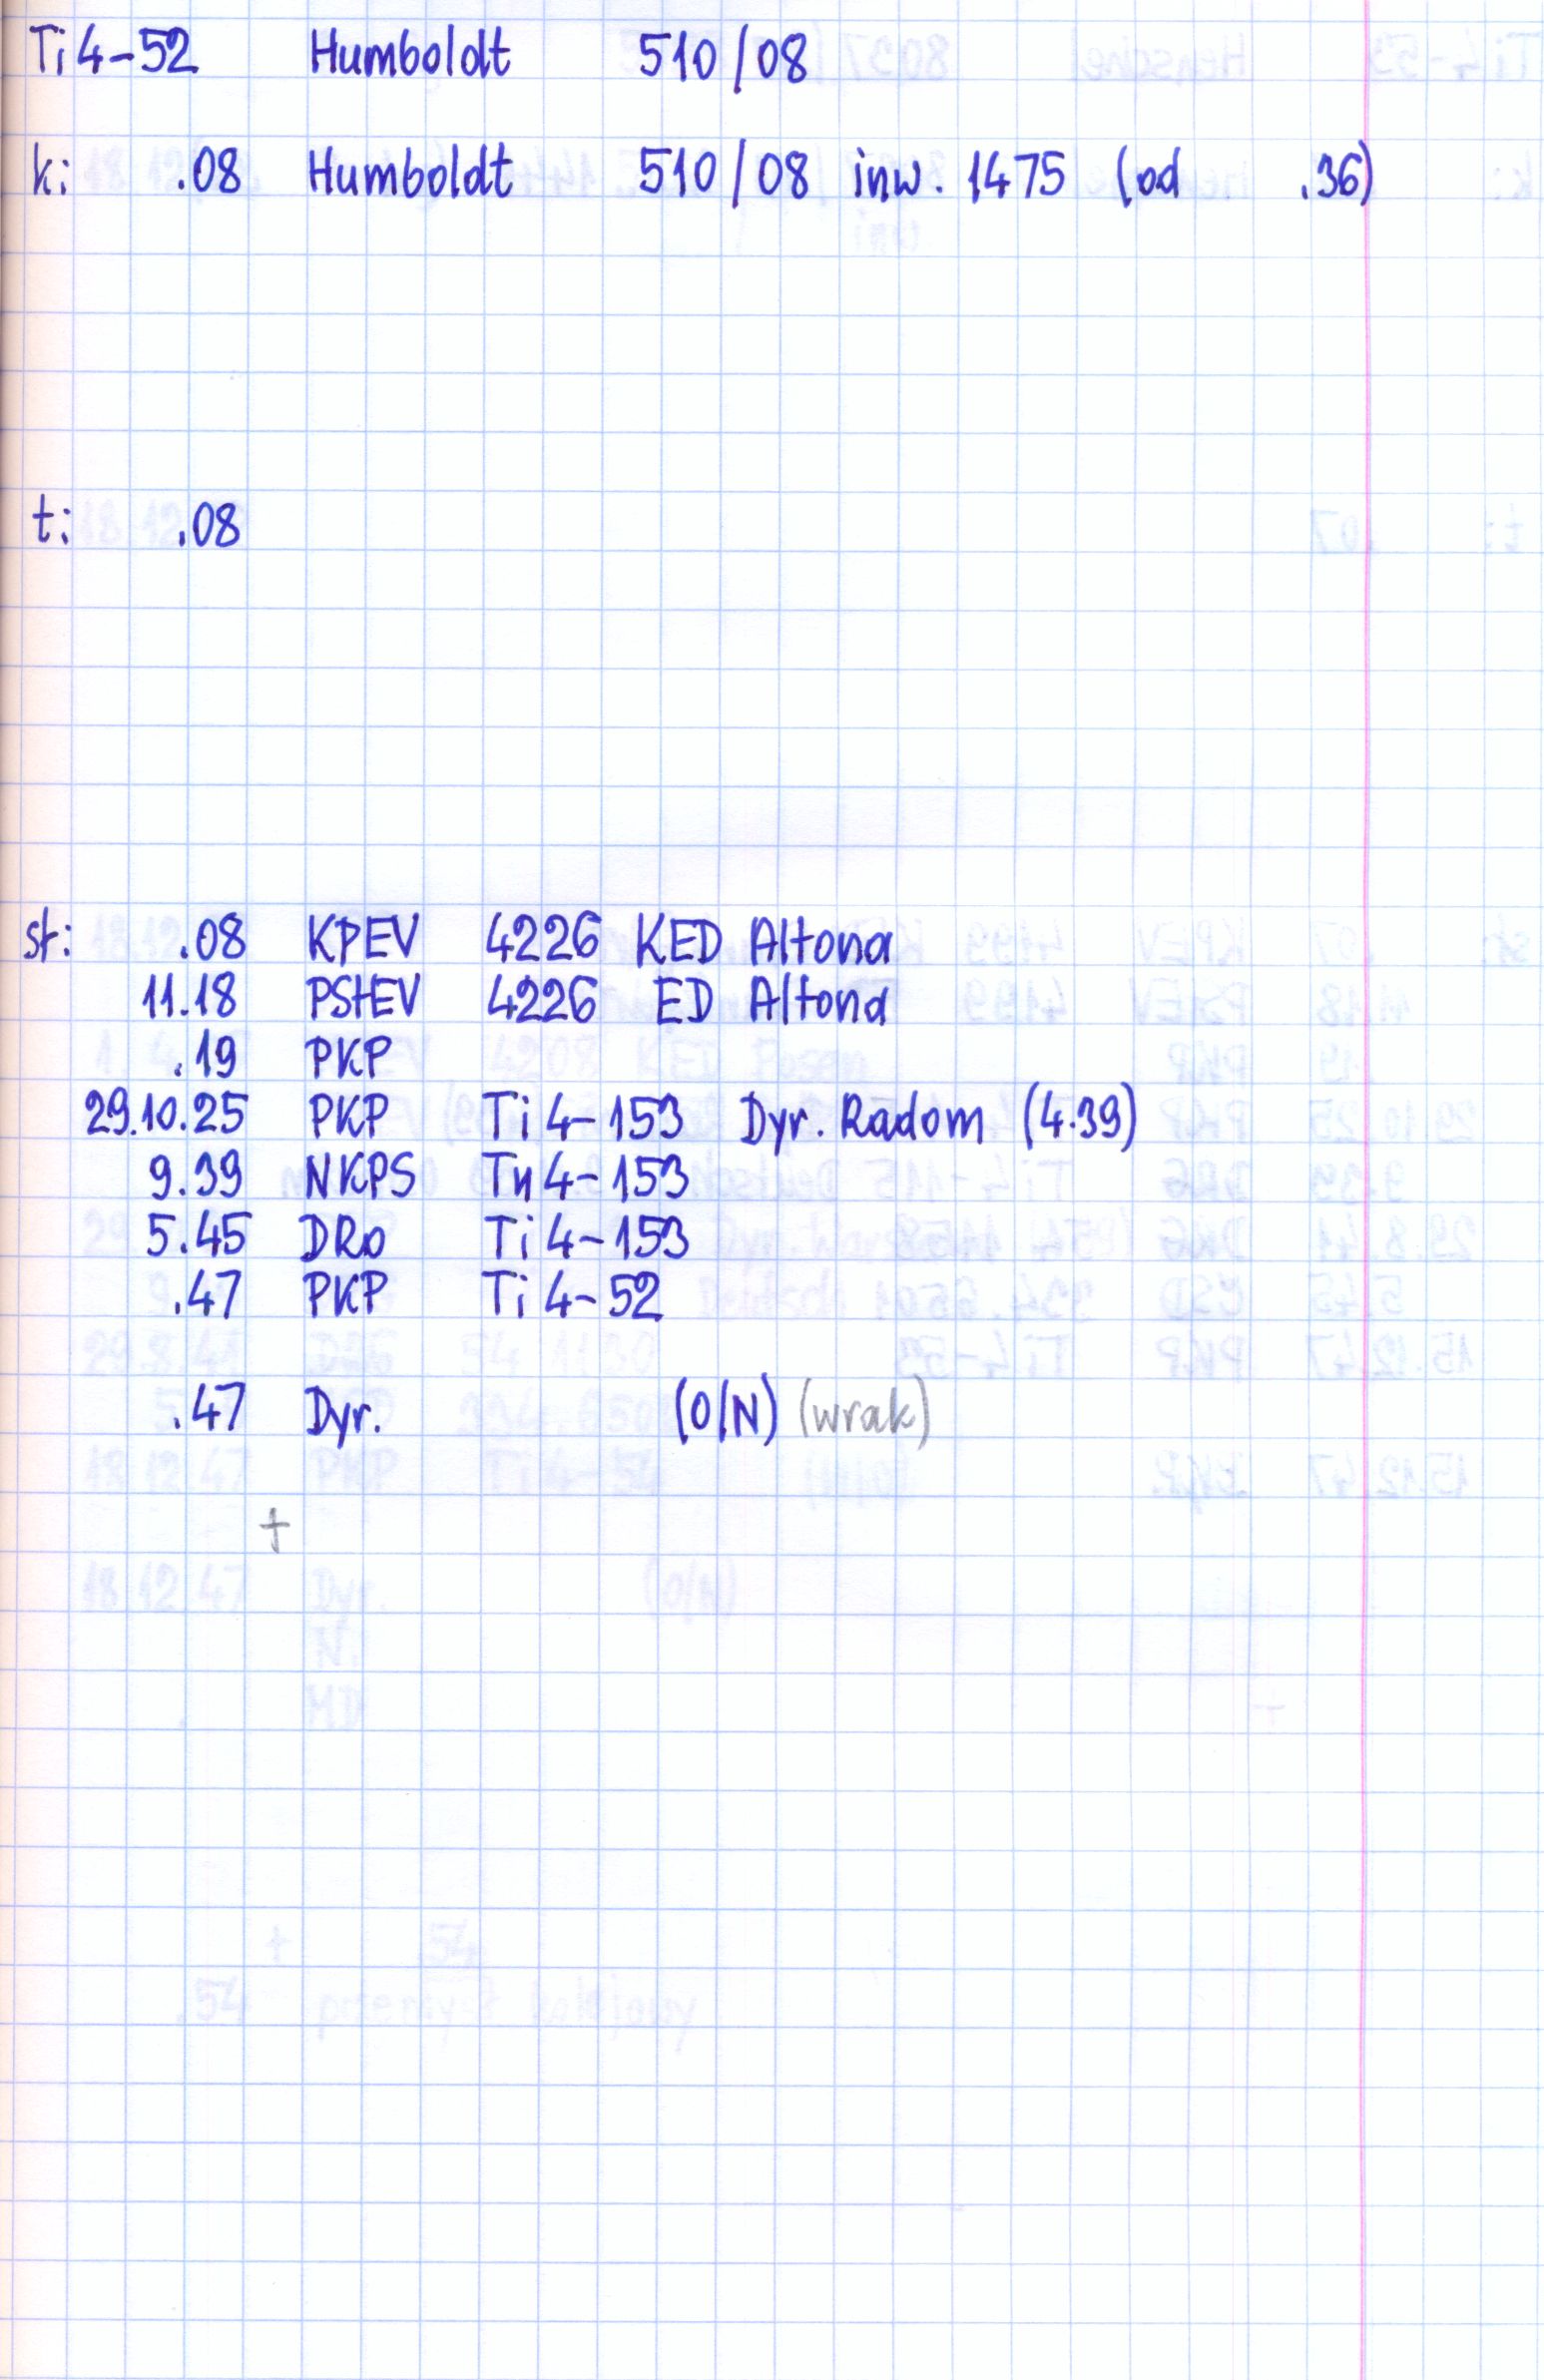 Ti4-52 Humboldt 510/08
k: .08 Humboldt 510/08 inw. 1475 (od .36)
t: .08
st: .08 KPEV 4226 KED Altona
11.18 PStEV 4226 ED Altona
.19 PKP
29.10.25 PKP Ti4-153 Dyr. Radom (4.39)
9.39 NKPS Tи4-153
5.45 DRo Ti4-153
.47 PKP Ti4-52
.47 Dyr. (O/N) (wrak)
+